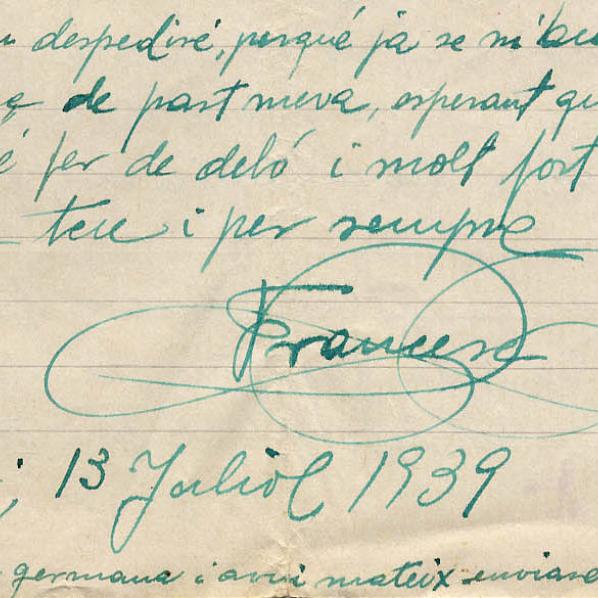 despediré, perqué ja se m'
de part meva, esperant qu
fer de debó i molt fort
teu i per sempre
Francesc
13 Juliol 1939
germana i avui mateix enviaré